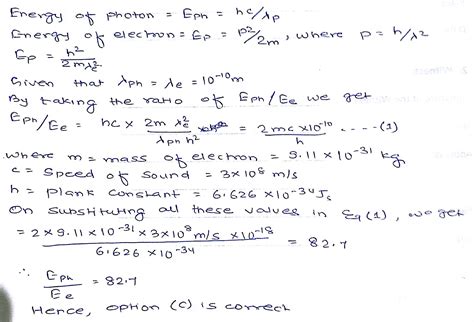 Energy of photon = Eph = hc/λp
Energy of electron = Ep = p²/2m, where p = h/λ²
Ep = h²/2mλe²
Given that λph = λe = 10⁻¹⁰m
By taking the ratio of Eph/Ee we get
Eph/Ee = hc × 2m λe²/λph h² = 2mc×10⁻¹⁰/h ....(1)
where m = mass of electron = 9.11 × 10⁻³¹ kg
c = speed of sound = 3×10⁸ m/s
h = plank constant = 6.626 ×10⁻³⁴ Js
On substituting all these values in Eq(1), we get
= 2×9.11×10⁻³¹×3×10⁸ m/s ×10⁻¹⁸/6.626 × 10⁻³⁴ = 82.7
∴ Eph/Ee = 82.7
Hence, option (C) is correct